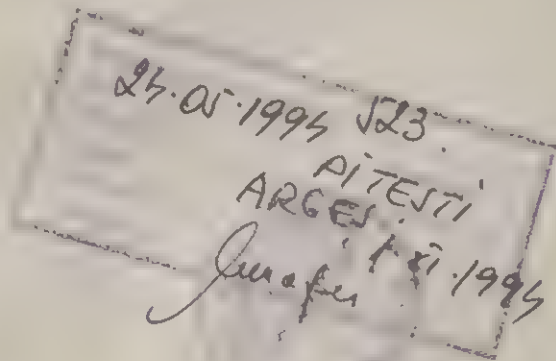 24.05.1994 523
PITESTI
ARGES
1.XI.1994